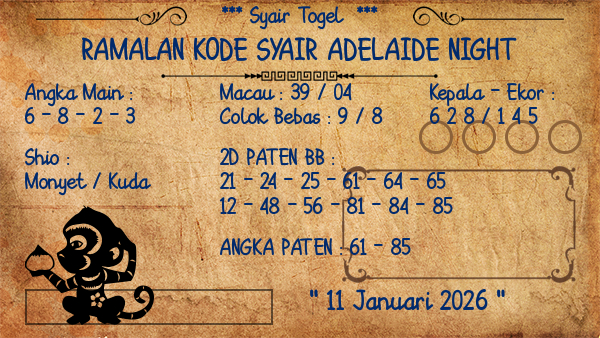 *** Syair Togel ***
RAMALAN KODE SYAIR ADELAIDE NIGHT
Angka Main :
6 - 8 - 2 - 3
Macau : 39 / 04
Colok Bebas : 9 / 8
Kepala - Ekor :
6 2 8 / 1 4 5
Shio :
Monyet / Kuda
2D PATEN BB :
21 - 24 - 25 - 61 - 64 - 65
12 - 48 - 56 - 81 - 84 - 85
ANGKA PATEN : 61 - 85
" 11 Januari 2026 "